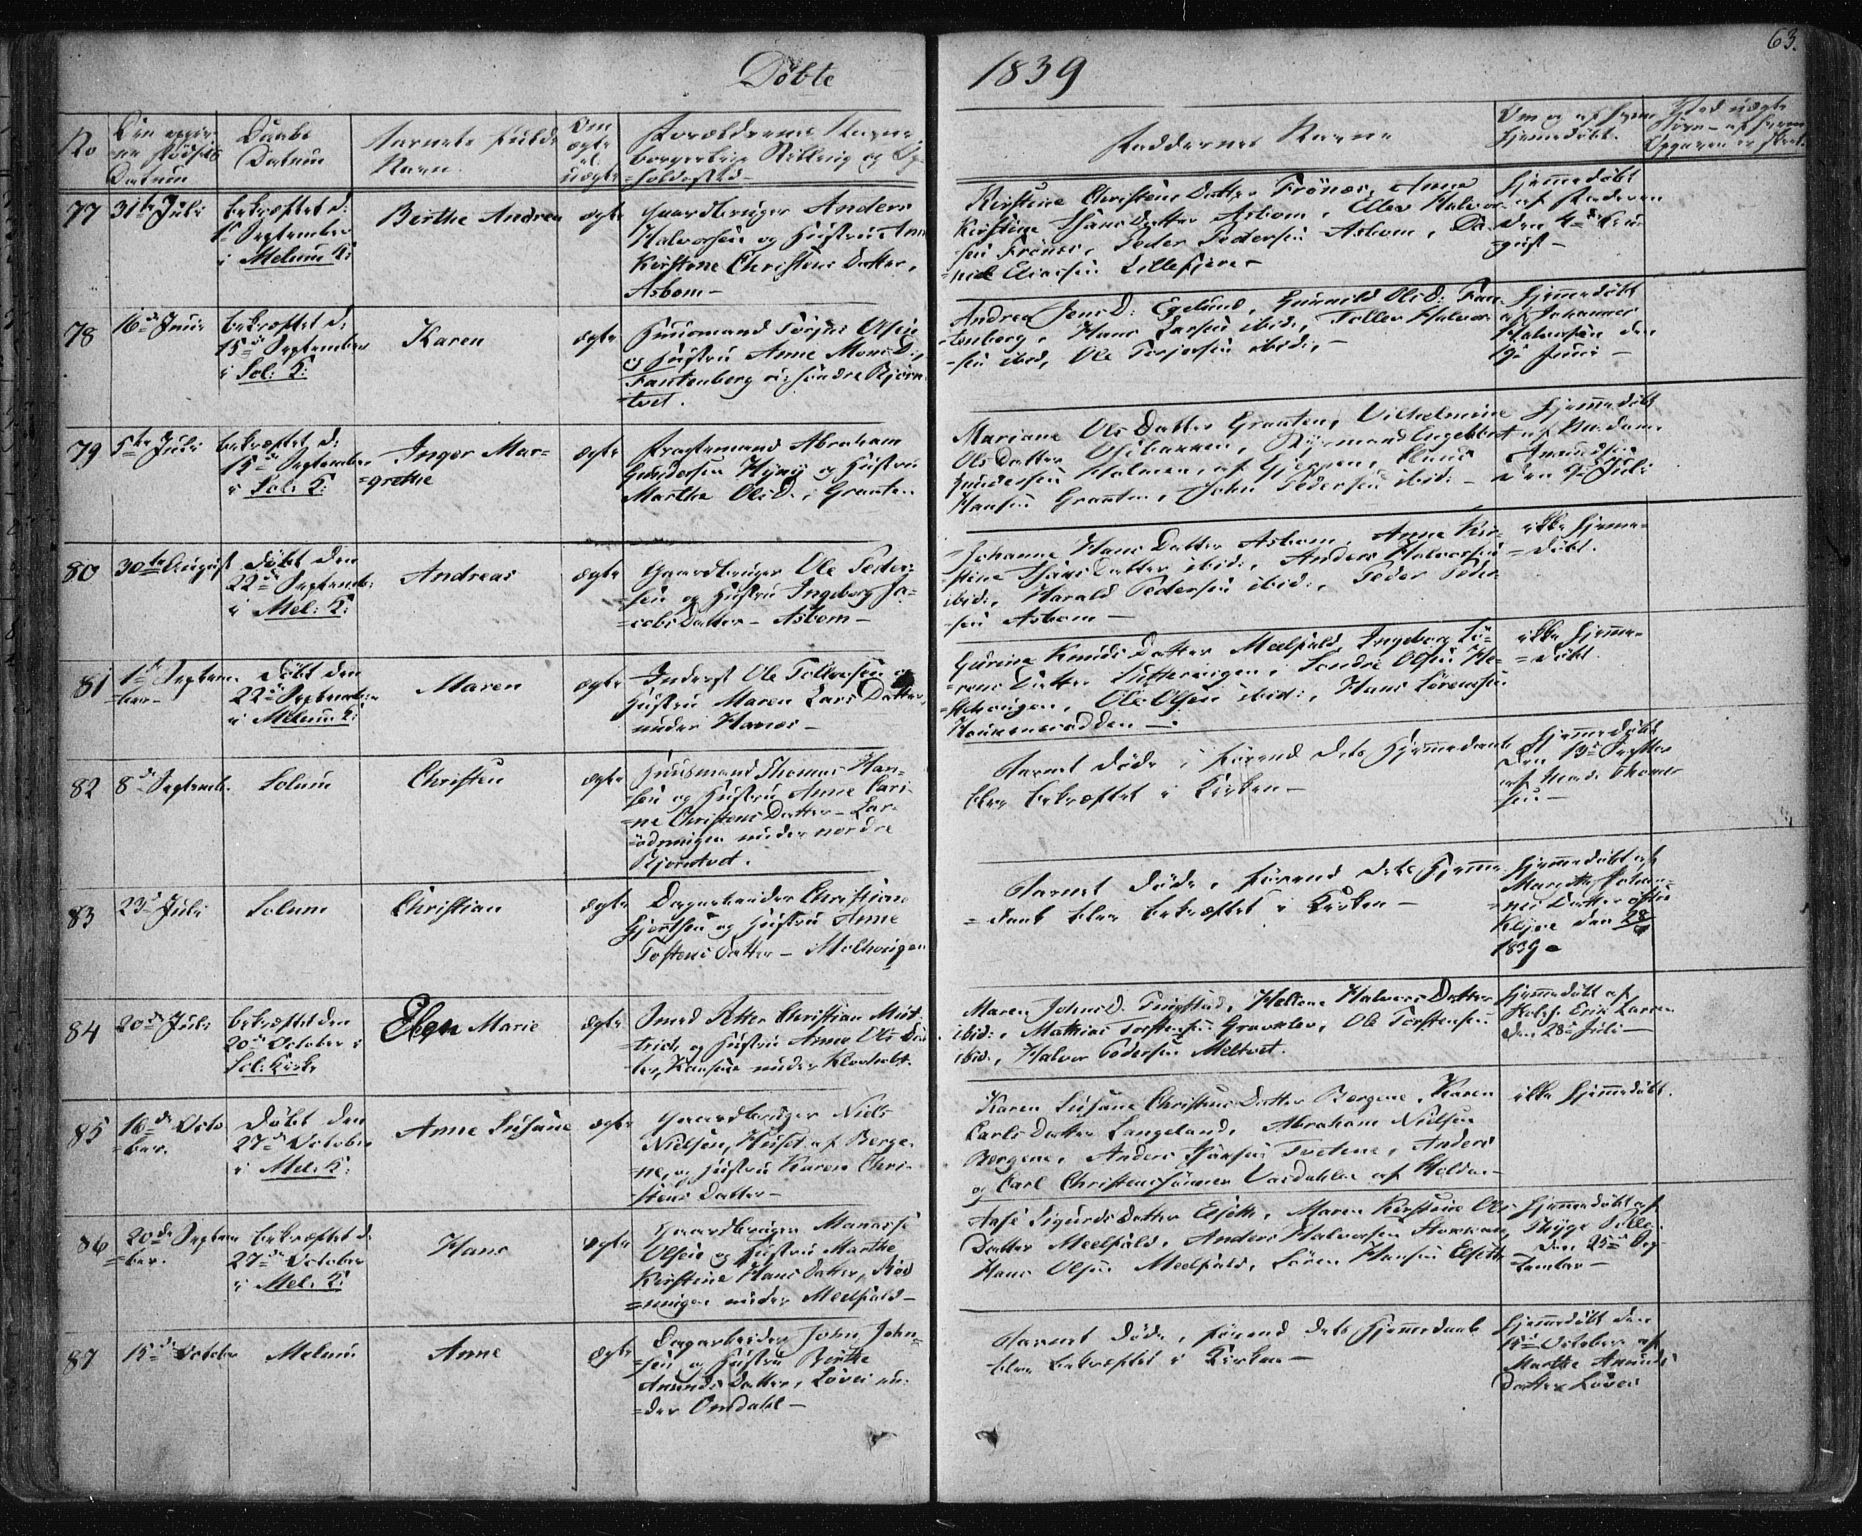 Döbte 1839
63.
No
Daabs
Datum
Barnets fulde
Navn.
Om
ægte
el.
uægte
Faddernes Navne
77 31te Juli
bekræftet d:
1ste September
i Melum K:
Birthe Andrea
ægte
Gaardbruger Anders
Halvorsen og Hustru Anne
Kirstene Christens Datter,
Asbom –
Kirstine Christens Datter Frönæs, Anne
Kirstine Hans Datter Asbom, Ellev Halvor-
sen Frönæs, Peder Pedersen Asbom, Da-
=niel Eliasen Lillekjær
hjemmedöbt
af Faderen
den 4de Au-
gust –
78 16de Juni
bekræftet d:
15de September
i Sol: K:
Karen
ægte
Huusmand Torjus Olsen
og Hustru Anne MonsD:,
Fantenberg u: söndre Bjørn
=tvet.
Andrea JensD: Eglund, Gunnild OlsD: Fan-
tenberg, Hans Larsen ibid:, Tollev Halvor-
=sen ibid, Ole Torjusen ibid:, –
hjemmedöbt
af Johannes
Halvorsen den
19de Juni –
79 5te Juli
bekræftet d:
15de September
i Sol: K:
Inger Mar=
=grethe
ægte
Abraham
Gundersen og Hustru
Marthe OlsD: i Granten
Mariane Ols Datter Granten, Vilhelmine
Ols Datter Engebbert
Gundersen Holmen, af Gjerpen, Knud
Hansen Granten, John Pedersen ibid: –
hjemmedöbt
af Madam
Amundsen
den 9de Juli
80 30te August
Döbt den
22de Septemb:
i Mel: K:
Andreas
ægte
Gaardbruger Ole Peder-
sen og Hustru Ingeborg Ja-
=cobs Datter – Asbom –
=Johanne Hans Datter Asbom, Anne Kir-
stine Hans Datter ibid:, Anders Halvorsen
ibid:, Harald Pedersen ibid:, Peder Peder-
sen Asbom –
ikke hjemme-
=döbt.
81 1ste Septem-
=ber –
Döbt den
22de September
i Melum K:
Maren
ægte
Inderst Ole Tollevsen og
Hustru Maren Lars Datter,
under Hanæs –
Gurine Knuds Datter Meelfald, Ingeborg Sö-
=rens Datter Sondre Olsen
Ole Olsen ibid:, Hans Sörensen
ikke hjemme-
=döbt.
82 8de Septemb.
Solum
Christen
ægte
Huusmand Thomas Han-
sen og Hustru Anne Cari-
=ne Christens Datter –
under nordre
Bjorntvet.
Barnet döde, forend dets Hjemmedaab
blev bekræftet i Kirken –
hjemmedöbt
den 13de Septbr
af Mads Thomas-
sen –
83 23de Juli
Solum
Christian
ægte
Dagarbeider Christian
Gjertsen og Hustru Anne
Tostens Datter – Melhvigen
Barnet döde, forend dets Hjemme-
=daab blev bekræftet i Kirken –
hjemmedöbt af
Marithe Johan-
=nes Datter östre
Klyve den 28/7
1839 –
84 20de Juli
bekræftet den
20de October i
Sol: Kirke
Elen Marie
ægte
Smed Peter Christian
og Hustru Anne Ols Dat-
ter, under Klovholt.
Maren JohnsD. Hellene Halvors Datter
ibid:, Mathias Torstensen Gravklev, Ole Torstensen
ibid., Halvor Pedersen Meltvet.
hjemmedöbt af
Erik Larsen
den 28de Juli –
85 16de Octo
=ber.
Döbt den
27de October
i Mel: K:
Anne Susane
ægte
Gaardbruger Niels
Nielsen, Huset af Berge-
ne, og Hustru Karen Chri-
=stens Datter –
Karen Susane Christens Datter Bergene, Karen
Carls Datter Langeland, Abraham Nielsen
Bergene, Anders Hansen Tvetene, Anders
og Carl Christensönner Vasdahlen af Holden –
ikke hjemmedöbt.
86 20de Septem
=ber.
bekræftet d.
27de October
i Mel. K:
Hans
ægte
Gaardbruger Manasse
Olsen og Hustru Marthe
Kirstine Hans Datter,
under Meelfald –
Sigurds Datter Maren Kirstine Ols
Datter Meelfald, Anders Halvorsen
Hans Olsen Meelfald, Sören Hansen
hjemmedöbt af
den 25de Sep-
tember –
87 15de October
Melum
Anne
ægte
Dagarbeider John John-
=sen og Hustru Birthe
Amunds Datter, Lövei un-
der Omdahl –
Barnet döde, forend dets Hjemmedaab
blev bekræftet i Kirken –
hjemmedöbt den
15de October af
Marthe Amunds
datter Lövei